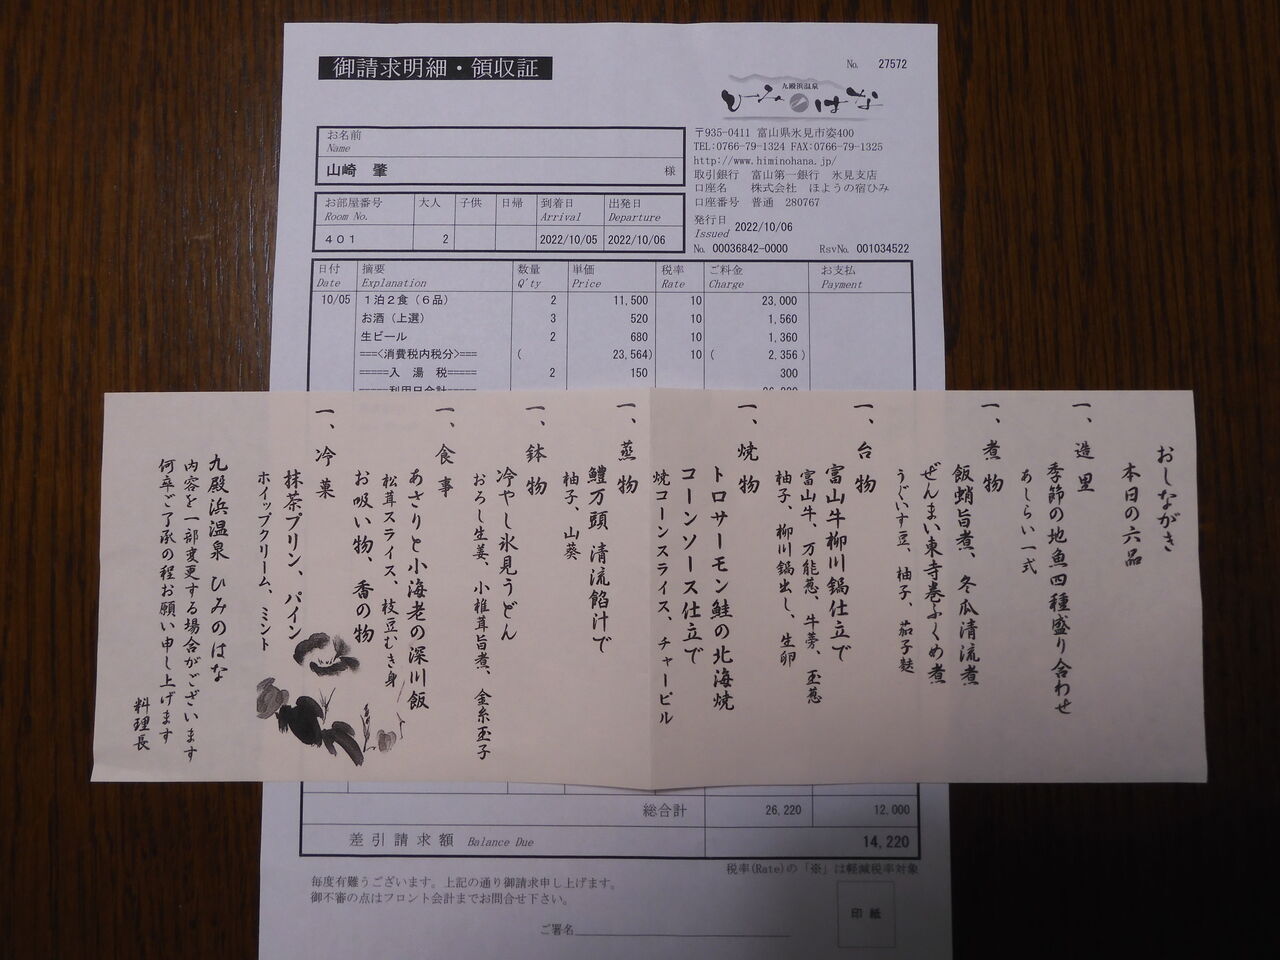 御請求明細・領収証
No. 27572
九殿浜温泉
ひみのはな
〒935-0411 富山県氷見市姿400
TEL:0766-79-1324 FAX:0766-79-1325
http://www.himinohana.jp/
取引銀行 富山第一銀行 氷見支店
口座名 株式会社 ほようの宿ひみ
口座番号 普通 280767
発行日
Issued 2022/10/06
No. 00036842-0000 RsvNo. 001034522
お名前
Name
山崎 肇 様
お部屋番号 大人 子供 日帰 到着日 出発日
Room No. Arrival Departure
401 2 2022/10/05 2022/10/06
日付 摘要 数量 単価 税率 ご料金 お支払
Date Explanation Q'ty Price Rate Charge Payment
10/05 1泊2食(6品) 2 11,500 10 23,000
お酒(上選) 3 520 10 1,560
生ビール 2 680 10 1,360
===<消費税内税分>=== ( 23,564) 10 ( 2,356 )
=====入 湯 税===== 2 150 300
おしながき
本日の六品
一、造里
季節の地魚四種盛り合わせ
あしらい一式
一、煮物
飯蛸旨煮、冬瓜清流煮
ぜんまい東寺巻ふくめ煮
うぐいす豆、柚子、茄子麩
一、台物
富山牛柳川鍋仕立で
富山牛、万能葱、牛蒡、玉葱
柚子、柳川鍋出し、生卵
一、焼物
トロサーモン鮭の北海焼
コーンソース仕立で
焼コーンスライス、チャービル
一、蒸物
鱧万頭 清流餡汁で
柚子、山葵
一、鉢物
冷やし氷見うどん
おろし生姜、小椎茸旨煮、金糸玉子
一、食事
あさりと小海老の深川飯
松茸スライス、枝豆むき身
お吸い物、香の物
一、冷菓
抹茶プリン、パイン
ホイップクリーム、ミント
九殿浜温泉 ひみのはな
内容を一部変更する場合がございます
何卒ご了承の程お願い申し上げます
料理長
総合計 26,220 12,000
差引請求額 Balance Due 14,220
税率(Rate)の「※」は軽減税率対象
毎度有難うございます。上記の通り御請求申し上げます。
御不審の点はフロント会計までお問合せ下さい。
印紙
ご署名